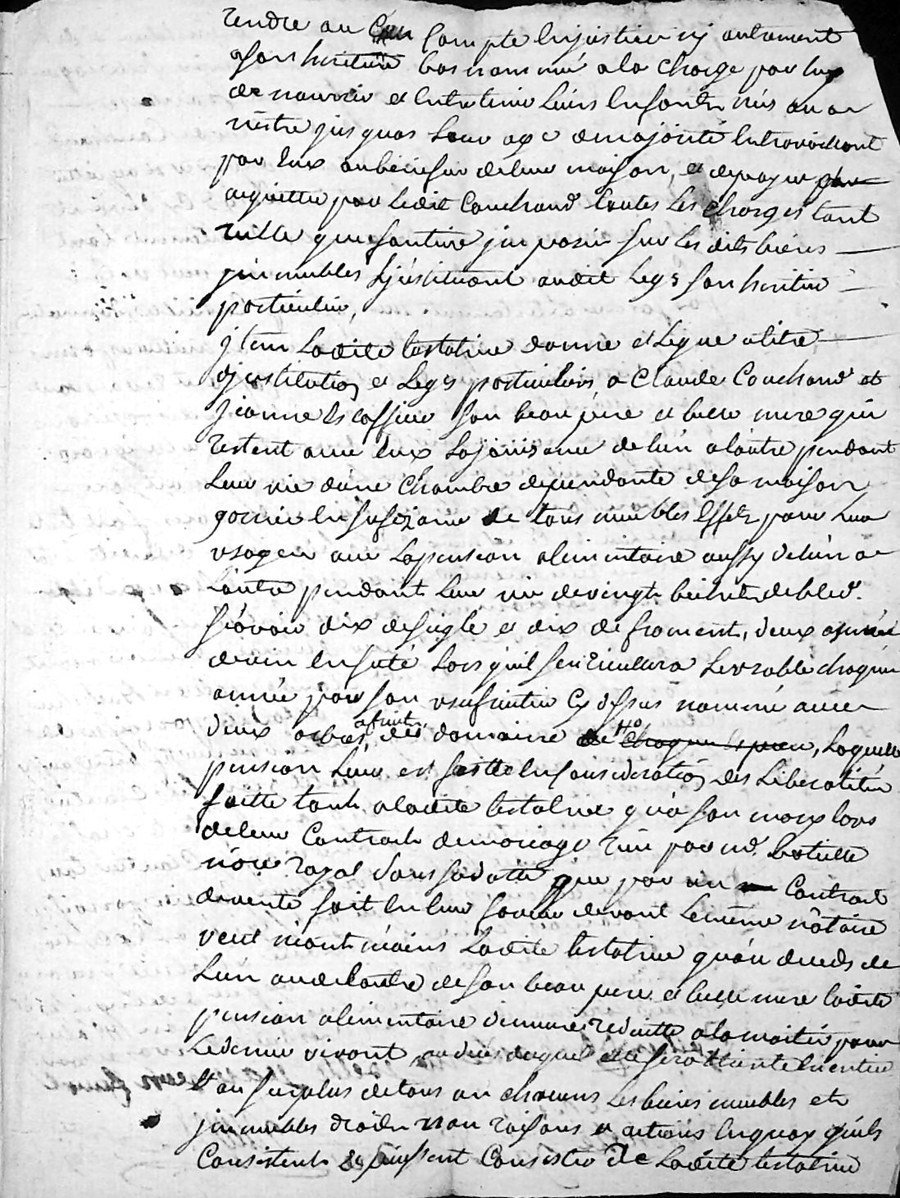 rendre aucun Compte en justice ny autrement
a son heritier bas nommé a la charge par luy
de nourrir et entretenir leurs enfants nés ou a
nëtre jus quas leur age de majorité en travaillant
par eux au benefice de leur maison, et de payer
aquitter par ledit Couchaud toutes les charges tant
rielle que fonciere jmposée sur les dits biens
jmmeubles l'jnstituant audit legs son heritier
particulier,
jtem Ladite testatrice donne et legue a titre
d'jnstitution et legs particuliers a Claude Couchaud et
Jeanne Escoffier son beau pere et belle mere qui
restent avec eux la jouissance de l'un a l'autre pendant
leur vie d'une chambre dependante de sa maison
garnie en suffizance de tous meubles effets pour leur
usage avec la pension alimentaire aussy de l'un a
l'autre pendant leur vie de vingt bichets de bled.
sçavoir dix de seigle et dix de froment, deux asnées
de vin en futé lors qu'il sera ceuillera payable chaque
année par son usufruitier cy dessus nommé avec
deux arbres a fruit des domaine de chaque espece, laquelle
pension leur est faitte en consideration des liberalités
faitte tant a ladite testatrice qu'a son mary lors
de leur Contract de mariage reçu par me
nore Royal sous sa datte que par un Contract
de vente fait en leur faveur devant le même nôtaire
veut neantmoins Ladite testatrice qu'au deceds de
l'un ou de l'autre de son beau pere et belle mere ladite
pension alimentaire demeure reduitte a la moitié pour
le dernier vivant au deceds duquel elle sera eteinte en entier
Et au surplus de tous un chacuns les biens meubles et
jmmeubles droits noms raisons et actions en quoy qu'ils
Consistent et puissent Consister de Ladite testatrice